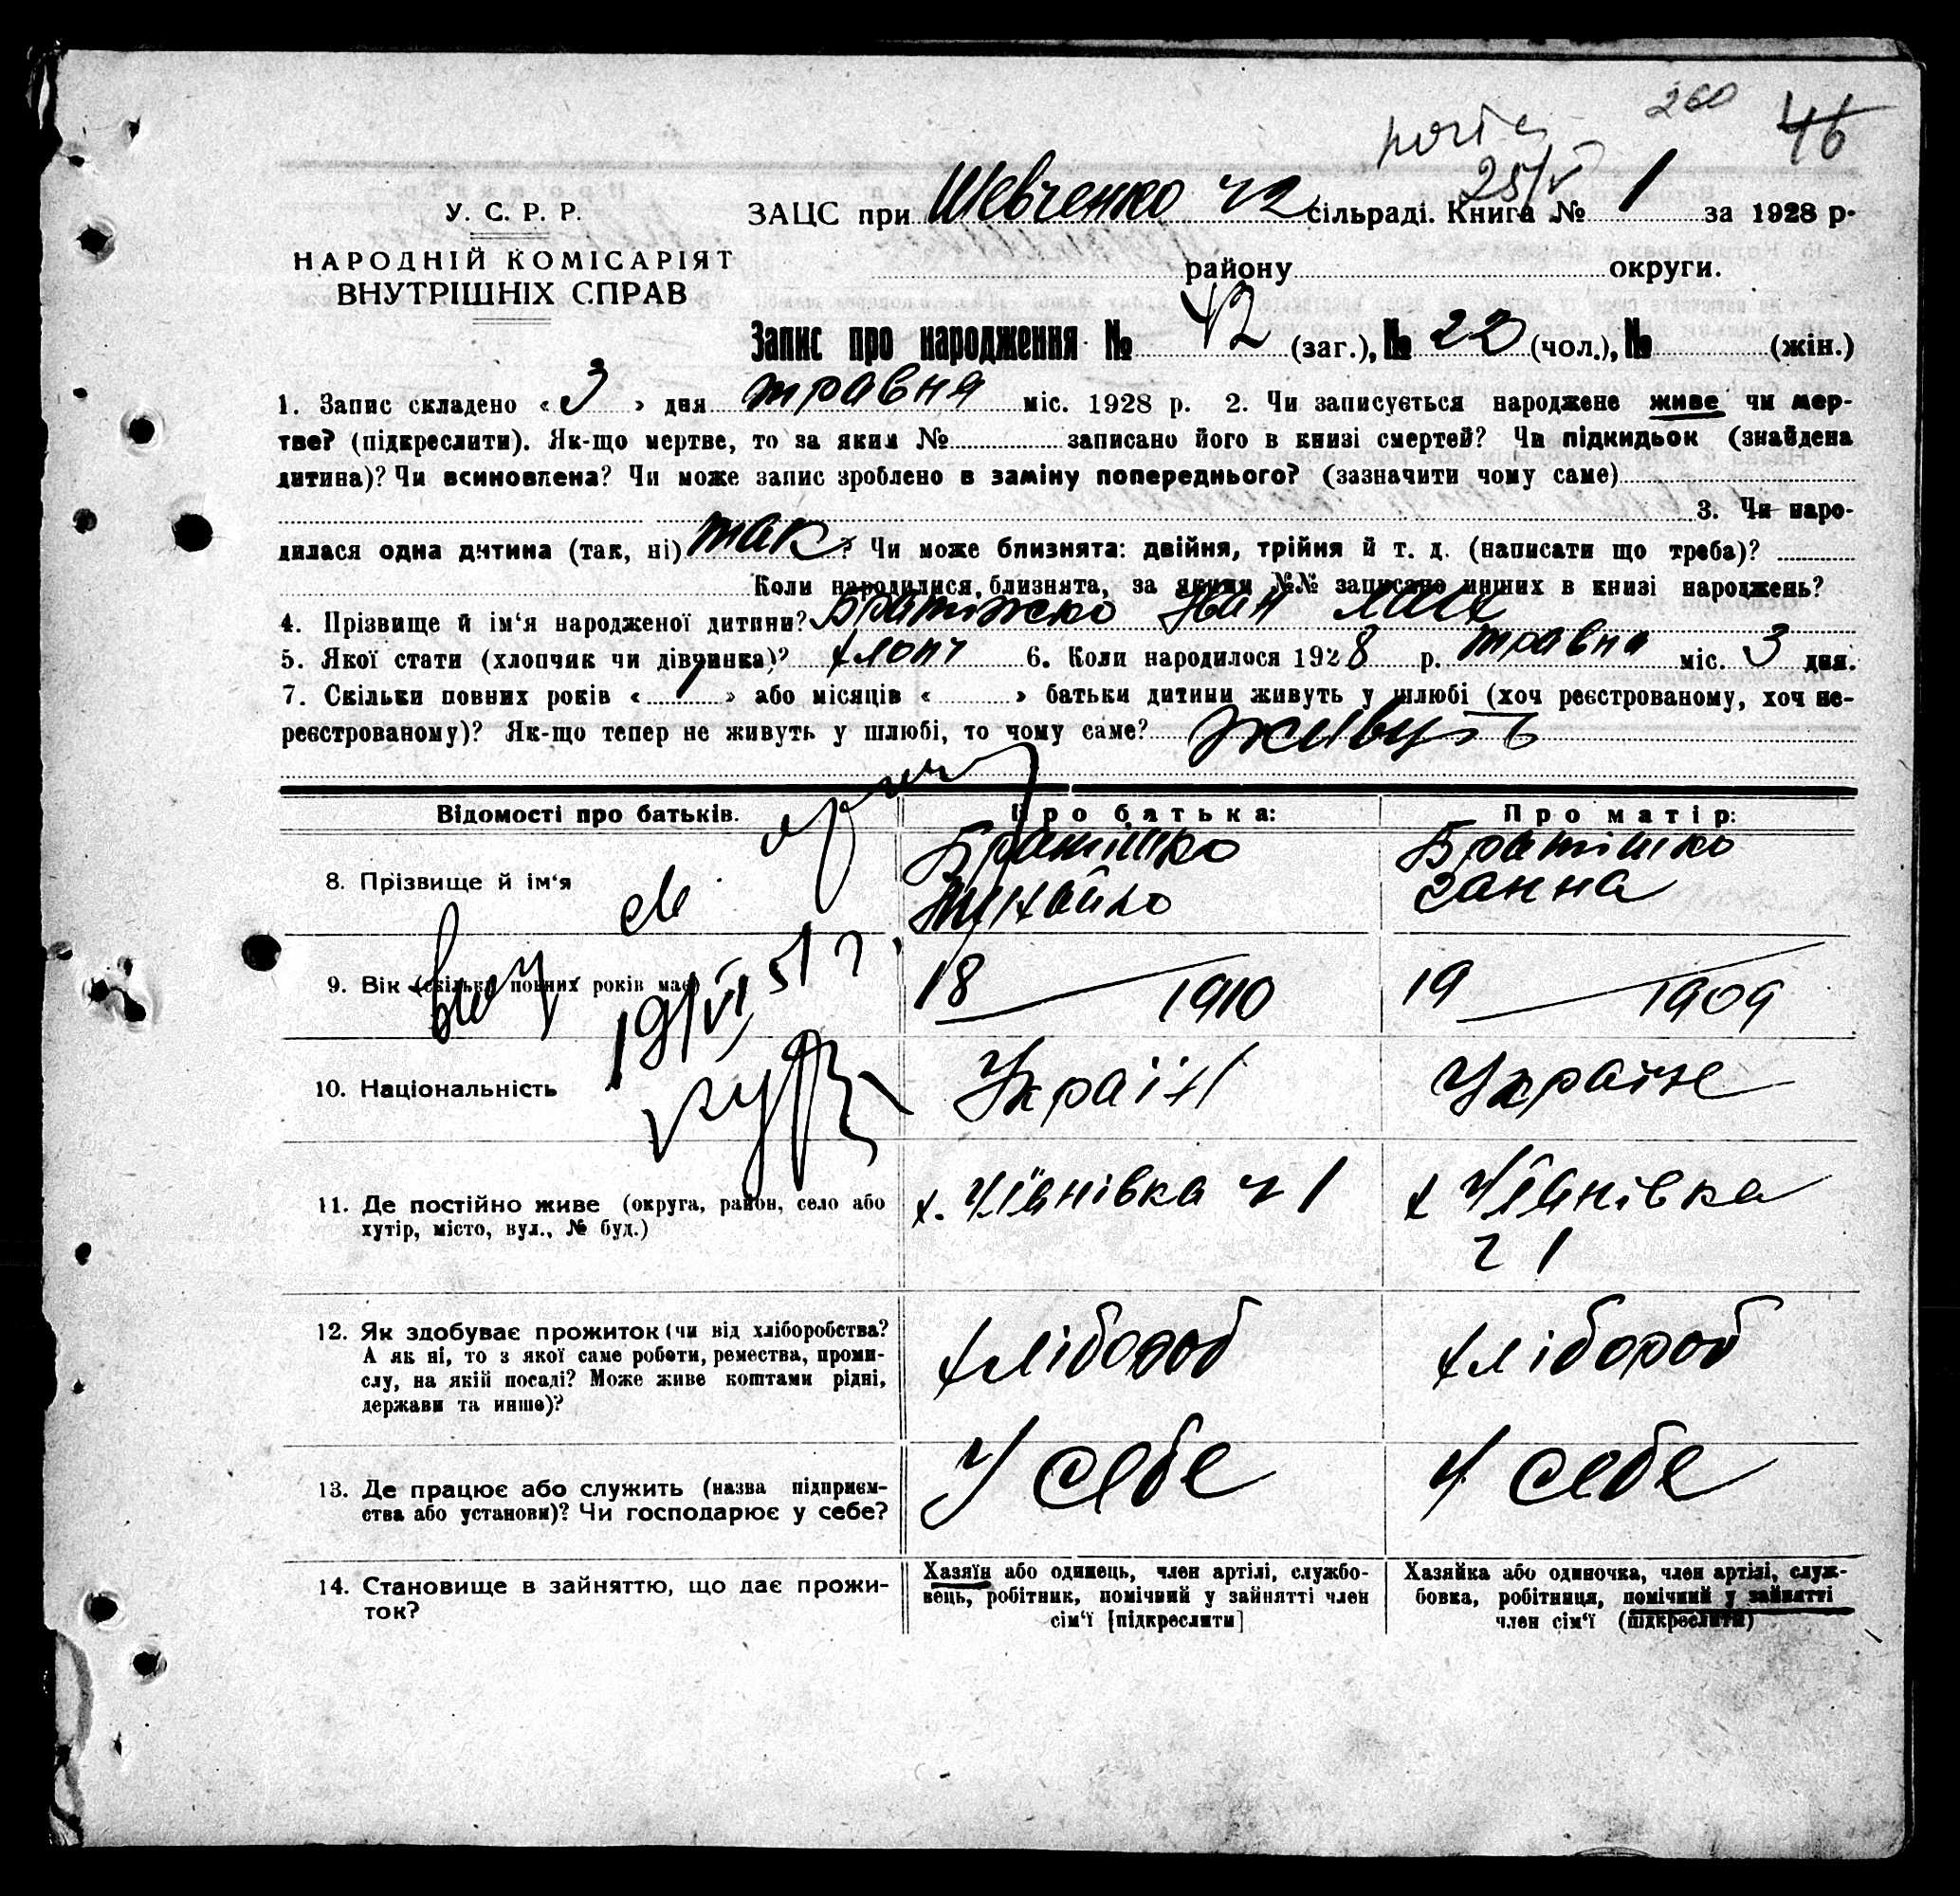 260 46
25/V
У. С. Р. Р.
НАРОДНІЙ КОМІСАРІЯТ
ВНУТРІШНІХ СПРАВ
ЗАЦС при Шевченко ч2 сільраді. Книга № 1 за 1928 р.
району округи.
Запис про народження № 42 (заг.), № 22 (чол.), № (жін.)
1. Запис складено « 3 » дня травня міс. 1928 р. 2. Чи записується народжене живе чи мер-
тве? (підкреслити). Як-що мертве, то за яким № записано його в книзі смертей? Чи підкидьок (знайдена
дитина)? Чи всиновлена? Чи може запис зроблено в заміну попереднього? (зазначити чому саме)
3. Чи наро-
дилася одна дитина (так, ні) так ? Чи може близнята: двійня, трійня й т. д. (написати що треба)?
Коли народилися близнята, за якими №№ записано инших в книзі народжень?
4. Прізвище й ім‘я народженої дитини? Братішко Іван
5. Якої стати (хлопчик чи дівчинка)? хлопч 6. Коли народилося 1928 р. травня міс. 3 дня.
7. Скільки повних років « 1 » або місяців « » батьки дитини живуть у шлюбі (хоч реєстрованому, хоч не-
реєстрованому)? Як-що тепер не живуть у шлюбі, то чому саме? живуть
Відомості про батьків. Про батька: Про матір:
8. Прізвище й ім‘я Братішко Михайло Братішко Ганна
9. Вік (скільки повних років має) 18 1910 19 1909
19/VI 51 г.
10. Національність Україн Україне
11. Де постійно живе (округа, район, село або
хутір, місто, вул., № буд.)
х. Іванівка ч 1 х Іванівка
ч 1
12. Як здобуває прожиток (чи від хліборобства?
А як ні, то з якої саме роботи, ремества, проми-
слу, на якій посаді? Може живе коштами рідні,
держави та инше)?
хлібороб хлібороб
13. Де працює або служить (назва підприєм-
ства або установи)? Чи господарює у себе?
У себе У себе
14. Становище в зайняттю, що дає прожи-
ток?
Хазяїн або одинець, член артілі, службо-
вець, робітник, помічний у зайнятті член
сім‘ї [підкреслити]
Хазяйка або одиночка, член артілі, служ-
бовка, робітниця, помічний у зайнятті
член сім‘ї (підкреслити)